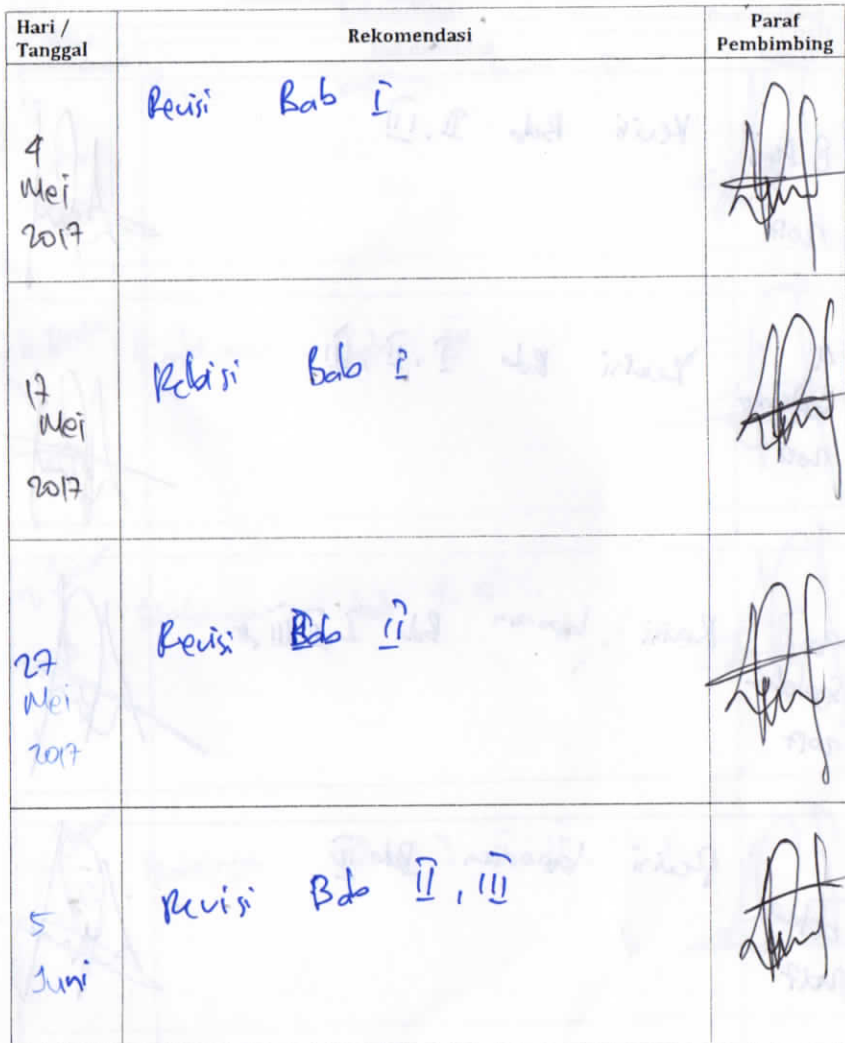 Hari / Tanggal
Rekomendasi
Paraf Pembimbing
4 Mei 2017
Revisi Bab I
17 Mei 2017
Rebisi Bab I
27 Mei 2017
Revisi Bab II
5 Juni
Revisi Bab II, III